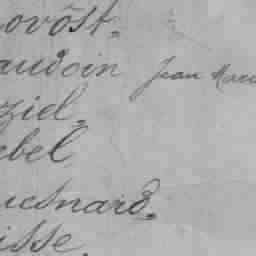 ovôst.
audoin Jean
ziel.
ebel
uesnard.
isse.